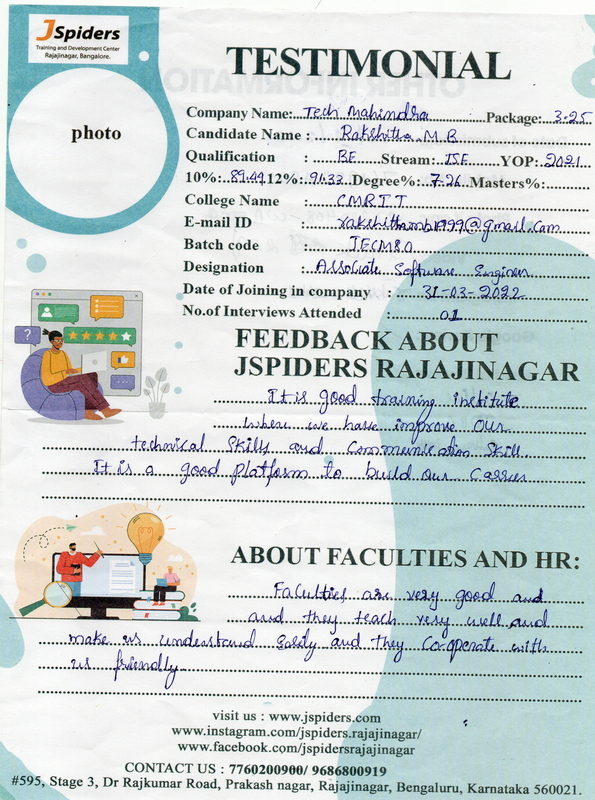 JSpiders
Training and Development Center
Rajajinagar, Bangalore.
TESTIMONIAL
photo
Company Name: Tech Mahindra Package: 3.25
Candidate Name : Rakshitha M B
Qualification : BE Stream: ISE YOP: 2021
10%: 89.44 12%: 91.33 Degree%: 7.26 Masters%:
College Name : CMRIT
E-mail ID rakshithamb1999@gmail.com
Batch code : JECM80
Designation : Associate Software Engineer
Date of Joining in company : 31-03-2022
No.of Interviews Attended : 01
FEEDBACK ABOUT
JSPIDERS RAJAJINAGAR
It is good training institute
where we have improve our
technical skills and communication skill
It is a good platform to build our carrier
ABOUT FACULTIES AND HR:
Faculties are very good and
and they teach very well and
make us understand easily and they co-operate with
us friendly
visit us : www.jspiders.com
www.instagram.com/jspiders.rajajinagar/
www.facebook.com/jspidersrajajinagar
CONTACT US : 7760200900/ 9686800919
#595, Stage 3, Dr Rajkumar Road, Prakash nagar, Rajajinagar, Bengaluru, Karnataka 560021.